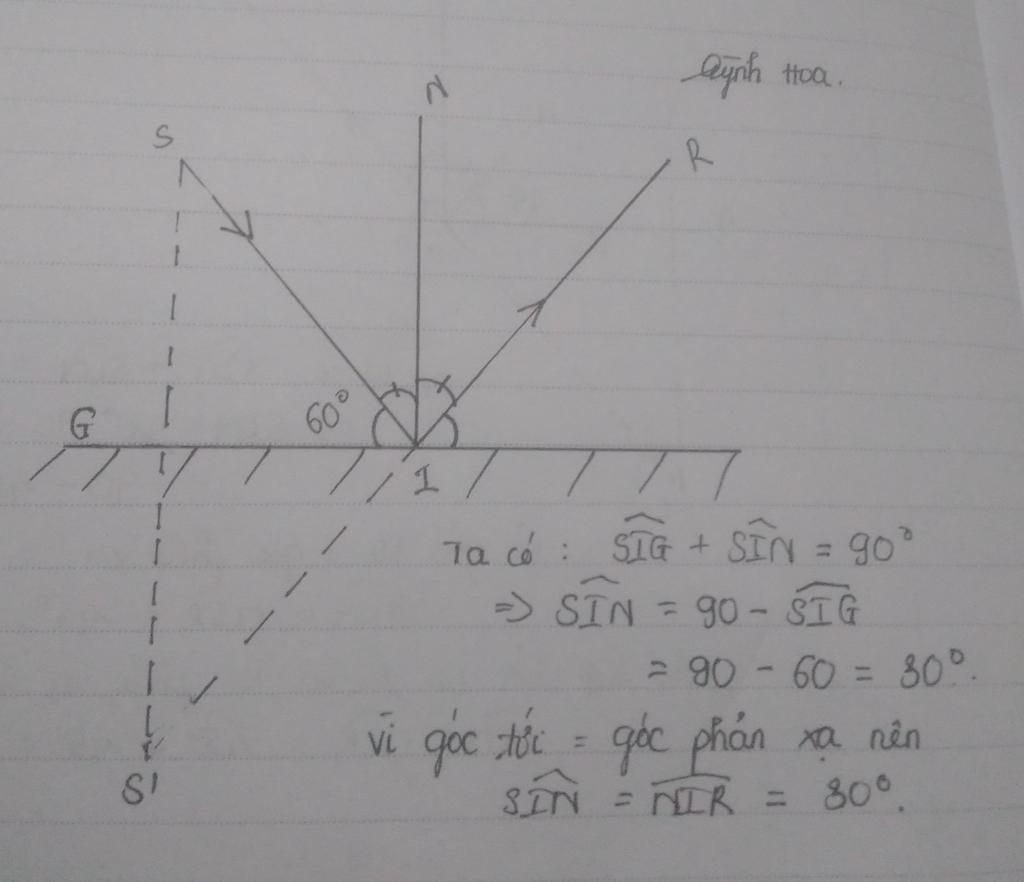 Quỳnh Hoa.
N
S
R
60°
G
I
Ta có : SIG + SIN = 90°
=> SIN = 90 - SIG
= 90 - 60 = 30°.
Vì góc tới = góc phản xạ nên
SIN = NIR = 30°.
S'